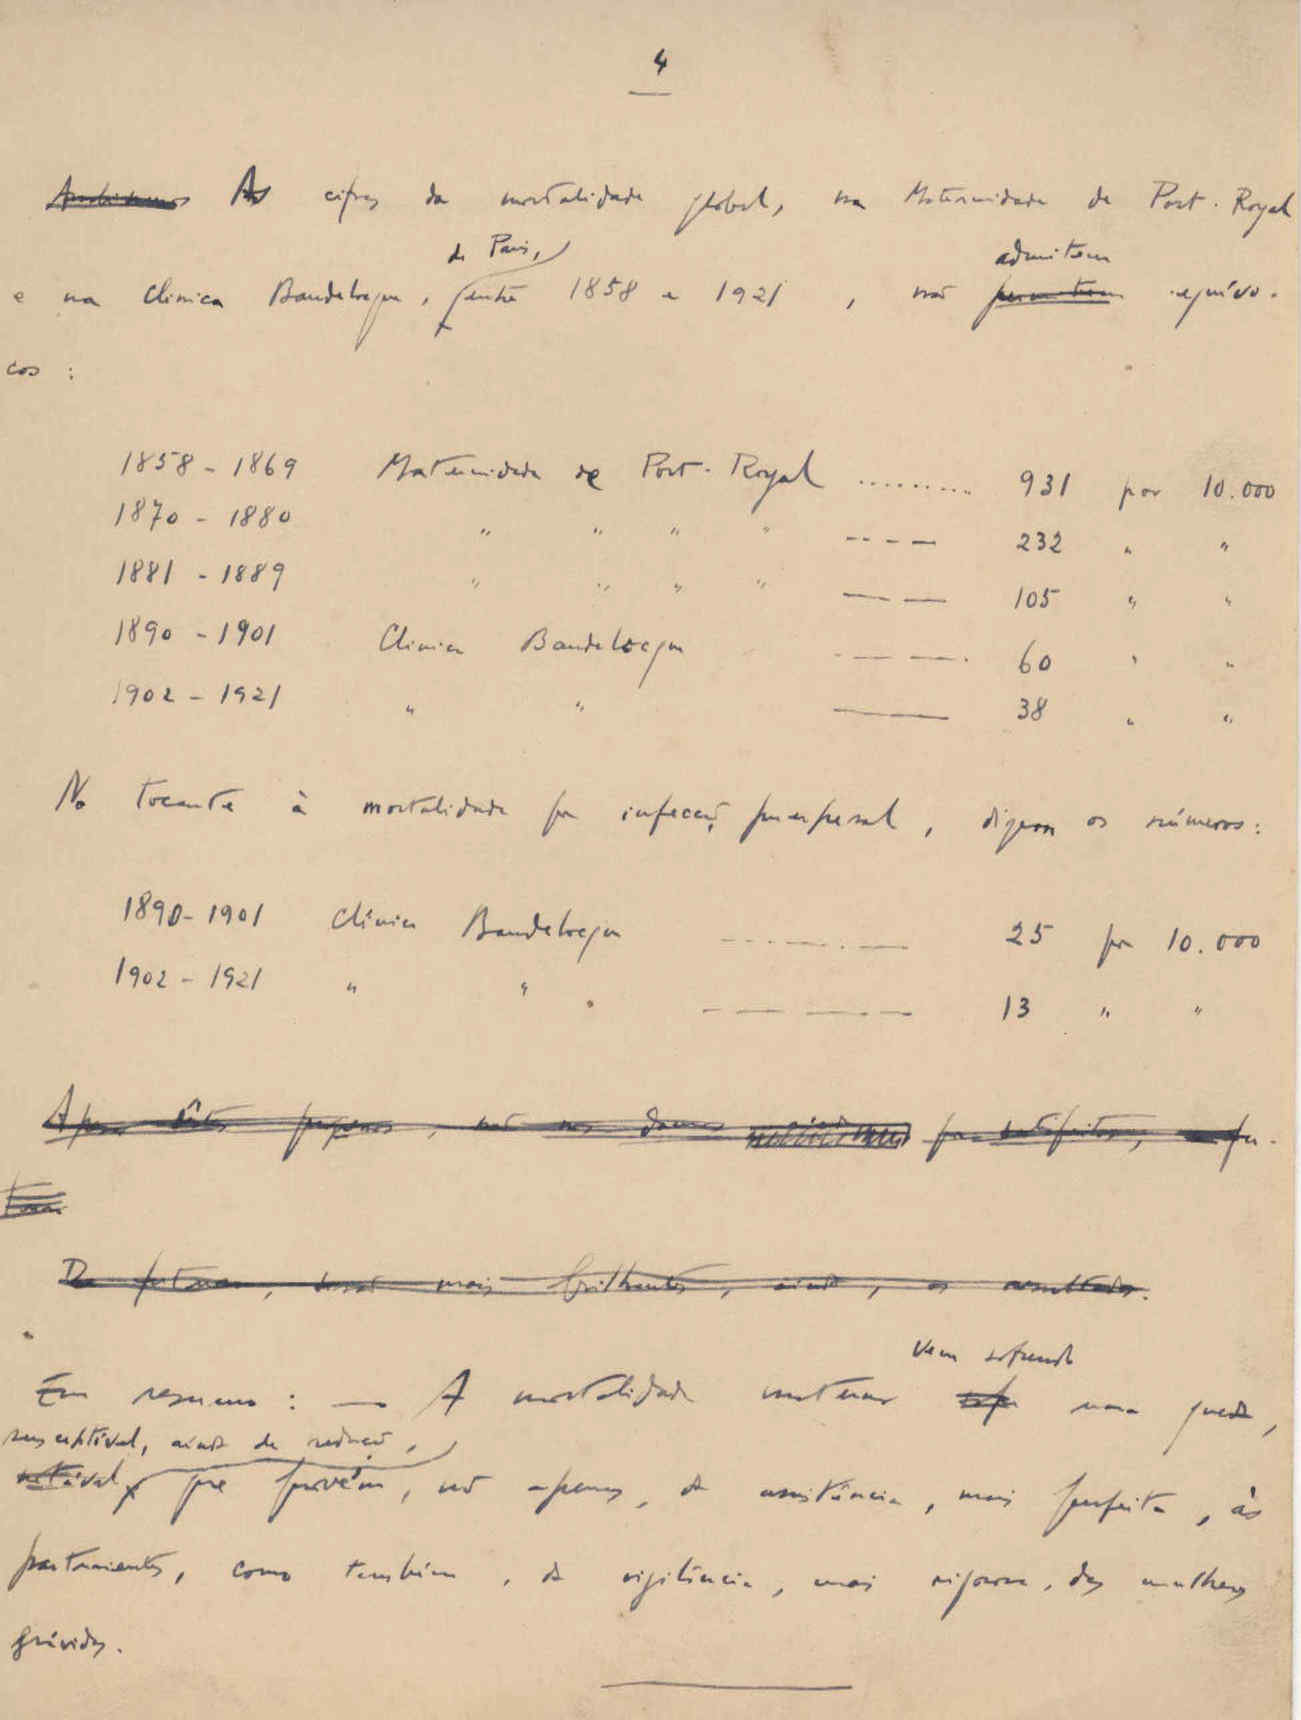 4
As cifras da mortalidade global, na Maternidade de Port-Royal
de Paris, admitem
e na Clinica Baudelocque, entre 1858 e 1921, não permitem equívo-
cos:
1858 - 1869 Maternidade de Port-Royal ......... 931 por 10.000
1870 - 1880 " " " " ---- 232 " "
1881 - 1889 " " " " —— 105 " "
1890 - 1901 Clinica Baudelocque ---- 60 " "
1902 - 1921 " " —— 38 " "
No tocante à mortalidade por infecção puerperal, digam os números:
1890 - 1901 Clínica Baudelocque ---- 25 por 10.000
1902 - 1921 " " ---- 13 " "
Apesar dêstes, não nos damos por satisfeitos,
De futuro, serão mais brilhantes, ainda, os resultados.
vem sofrendo
Em resumo: — A mortalidade materna uma queda,
susceptível, ainda de redução,
notável, que provém, não apenas, da assistência, mais perfeita, às
parturientes, como também, da vigilância, mais rigorosa, das mulheres
grávidas.